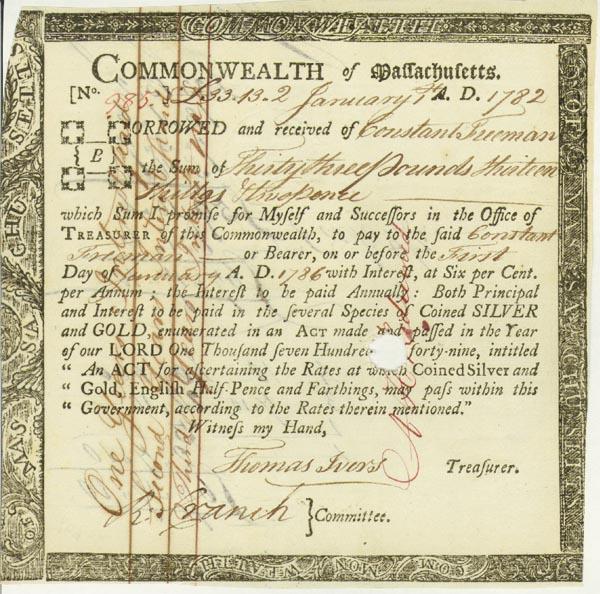 COMMONWEALTH
COMMONWEALTH of Massachusetts.
[No. 285.] £33.13.2 January 1st A. D. 1782
BORROWED and received of Constant Freeman
the Sum of Thirty three Pounds thirteen
Shillgs & two pence
which Sum I promise for Myself and Successors in the Office of
TREASURER of this Commonwealth, to pay to the said Constant
Freeman or Bearer, on or before the First
Day of January A. D. 1786 with Interest, at Six per Cent.
per Annum ; the Interest to be paid Annually : Both Principal
and Interest to be paid in the several Species of Coined SILVER
and GOLD, enumerated in an ACT made and passed in the Year
of our LORD One Thousand seven Hundred forty-nine, intitled
“ An ACT for ascertaining the Rates at which Coined Silver and
“ Gold, English Half-Pence and Farthings, may pass within this
“ Government, according to the Rates therein mentioned.”
Witness my Hand,
Thomas Ivers Treasurer.
R. Cranch } Committee.
One Year
Second
Third
COMMONWEALTH
OF MASSACHUSETTS